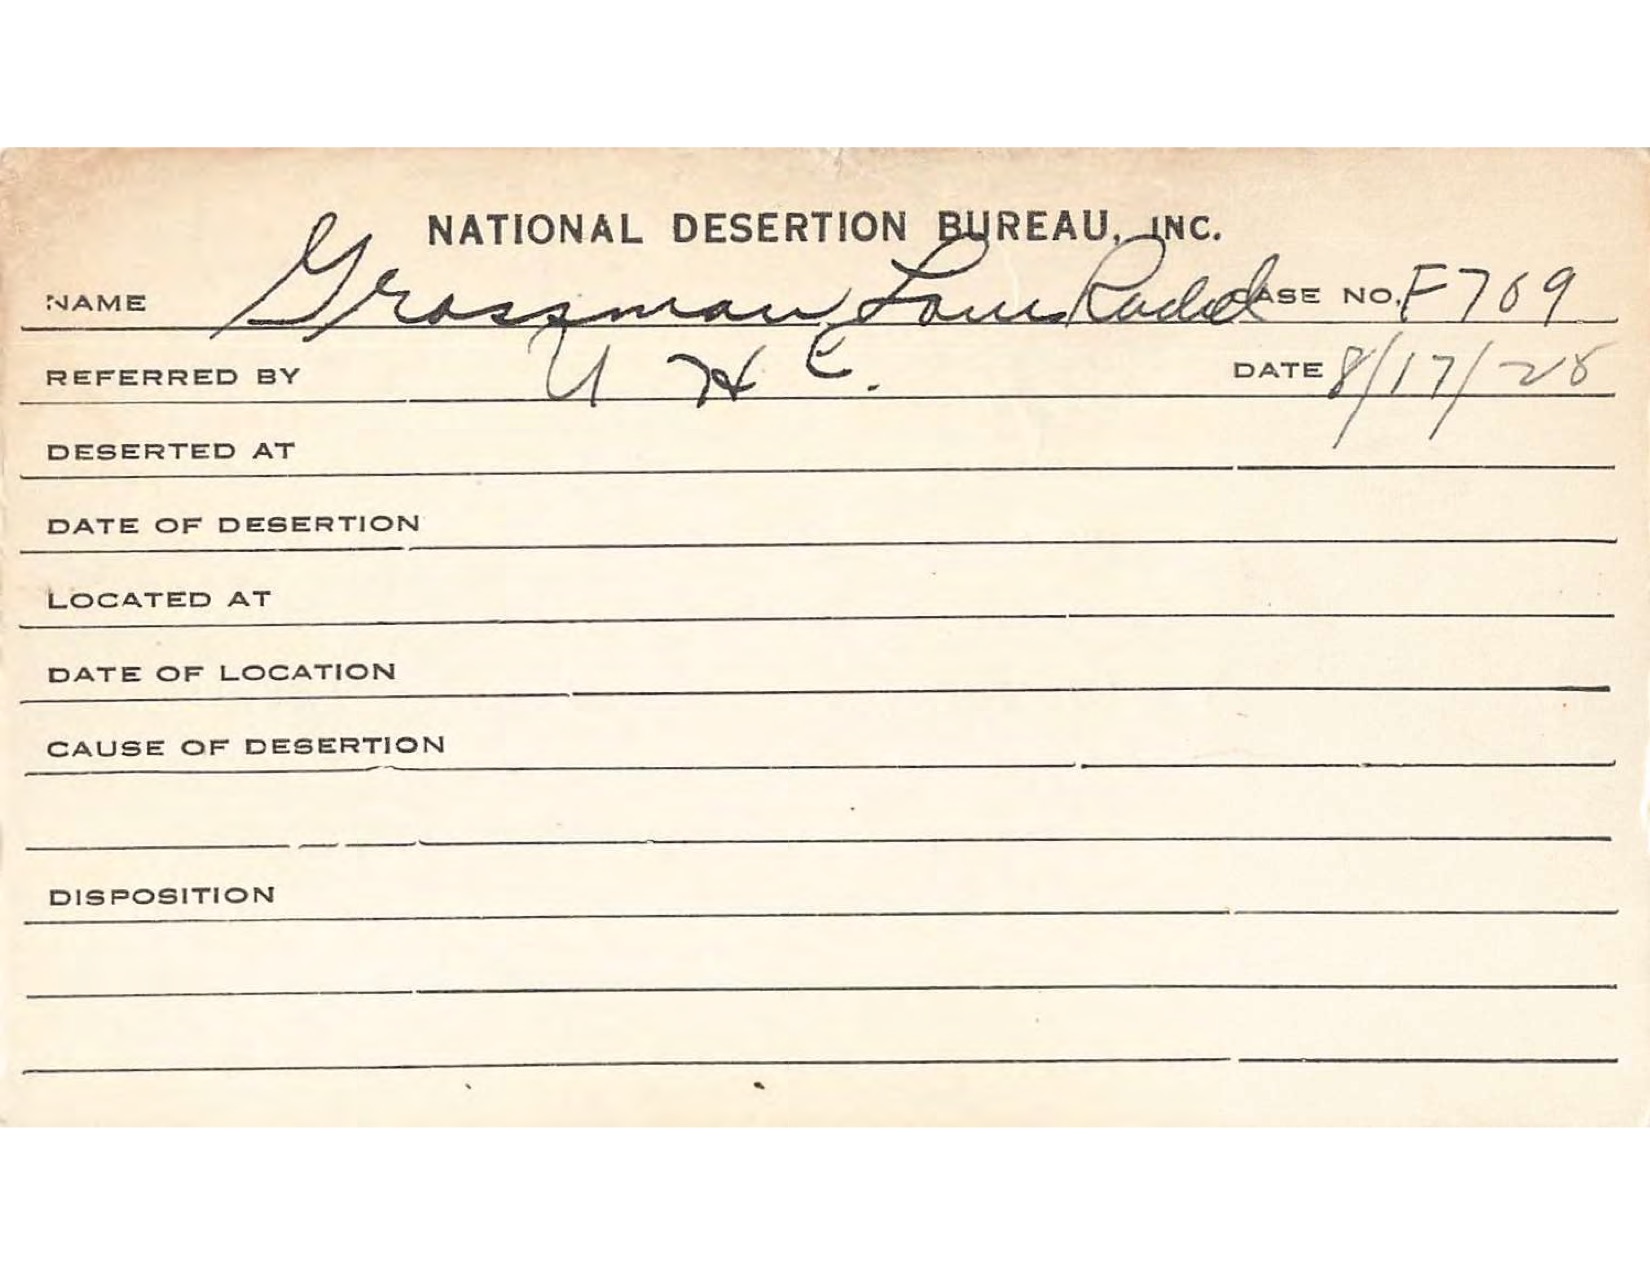 NATIONAL DESERTION BUREAU, INC.
NAME Grossman Louis CASE NO. F709
REFERRED BY U H C. DATE 8/17/28
DESERTED AT
DATE OF DESERTION
LOCATED AT
DATE OF LOCATION
CAUSE OF DESERTION
DISPOSITION